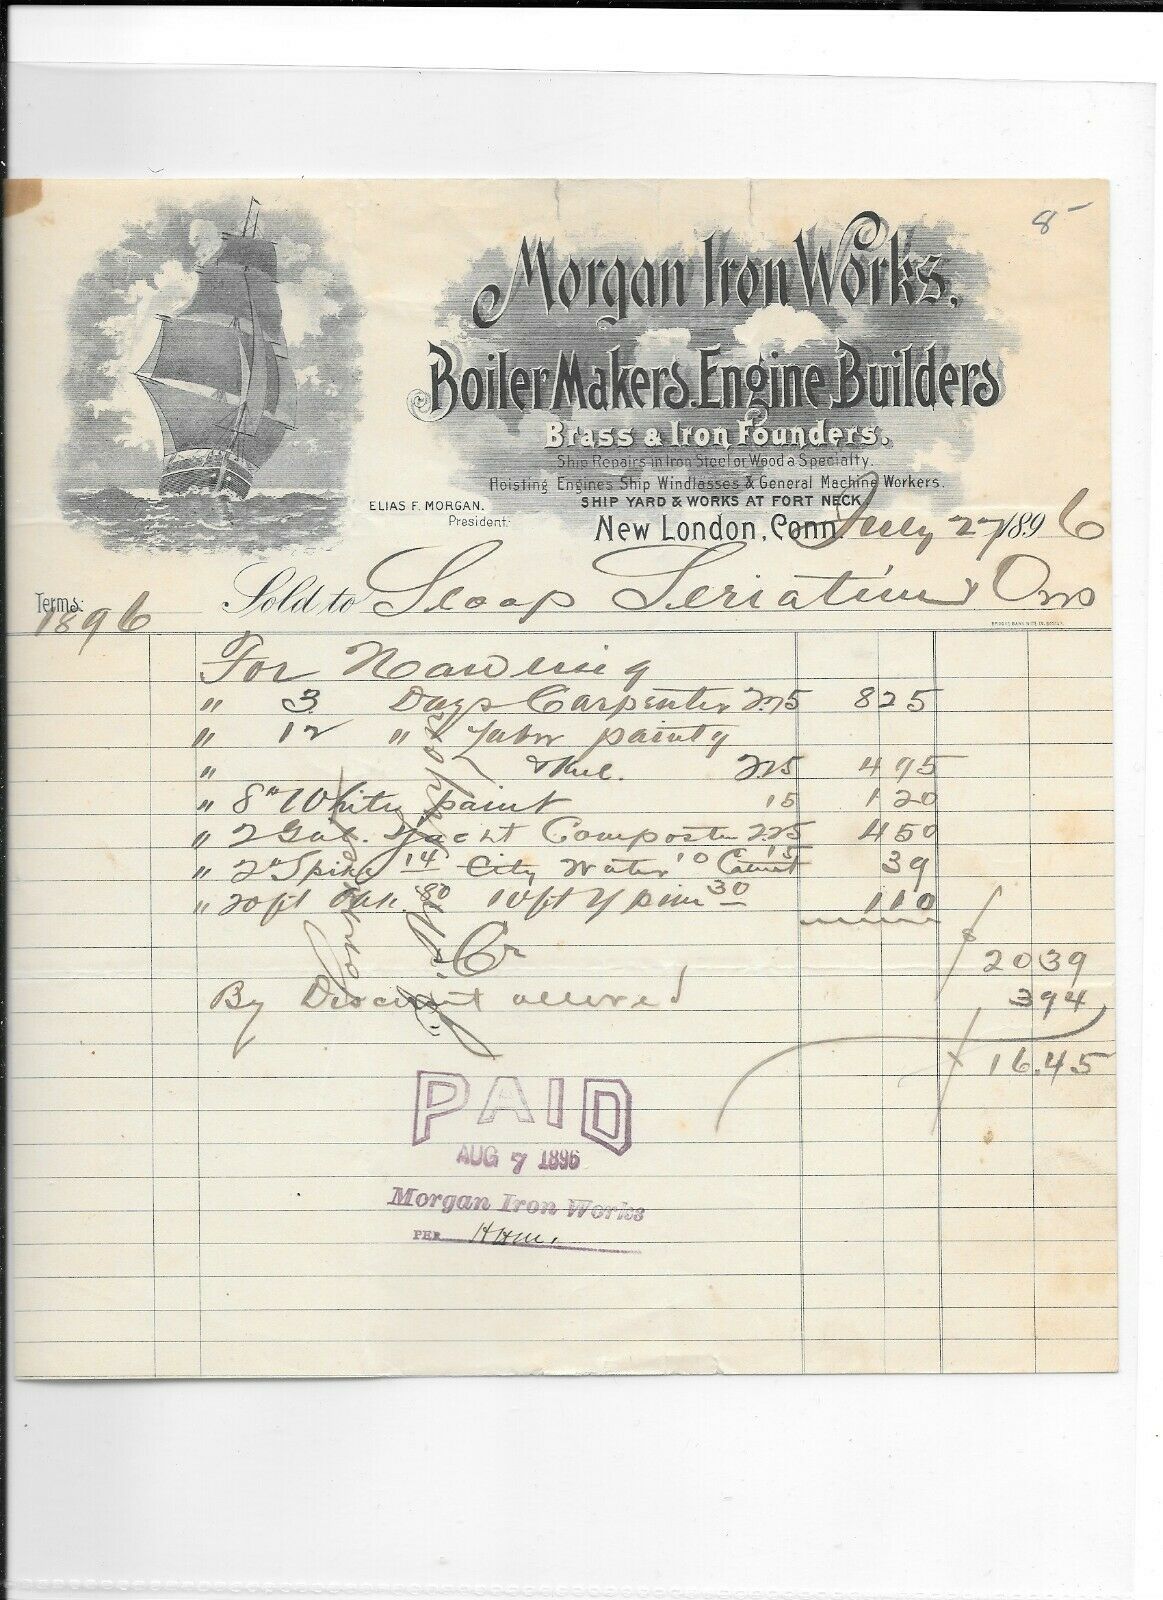 8
Morgan Iron Works.
Boiler Makers. Engine Builders
Brass & Iron Founders.
Ship Repairs in Iron Steel or Wood a Specialty.
Hoisting Engines Ship Windlasses & General Machine Workers.
ELIAS F. MORGAN. President.
SHIP YARD & WORKS AT FORT NECK
New London, Conn. July 27 1896
Terms: Sold to Sloop Seriatim & Ows
1896
For
" 3 Days Carpenter 2.75 825
" 12 " Labor paintg
" 2.25 495
" 8" White paint 15 120
" 2 Gal. Yacht Composten 2.25 450
" 2" Spike 14 City Water 10 15 39
" 20ft Oak 80 10ft Y pine 30 110
$ 2039
Cr
By Discount allowed 394
16.45
PAID
AUG 7 1896
Morgan Iron Works
PER